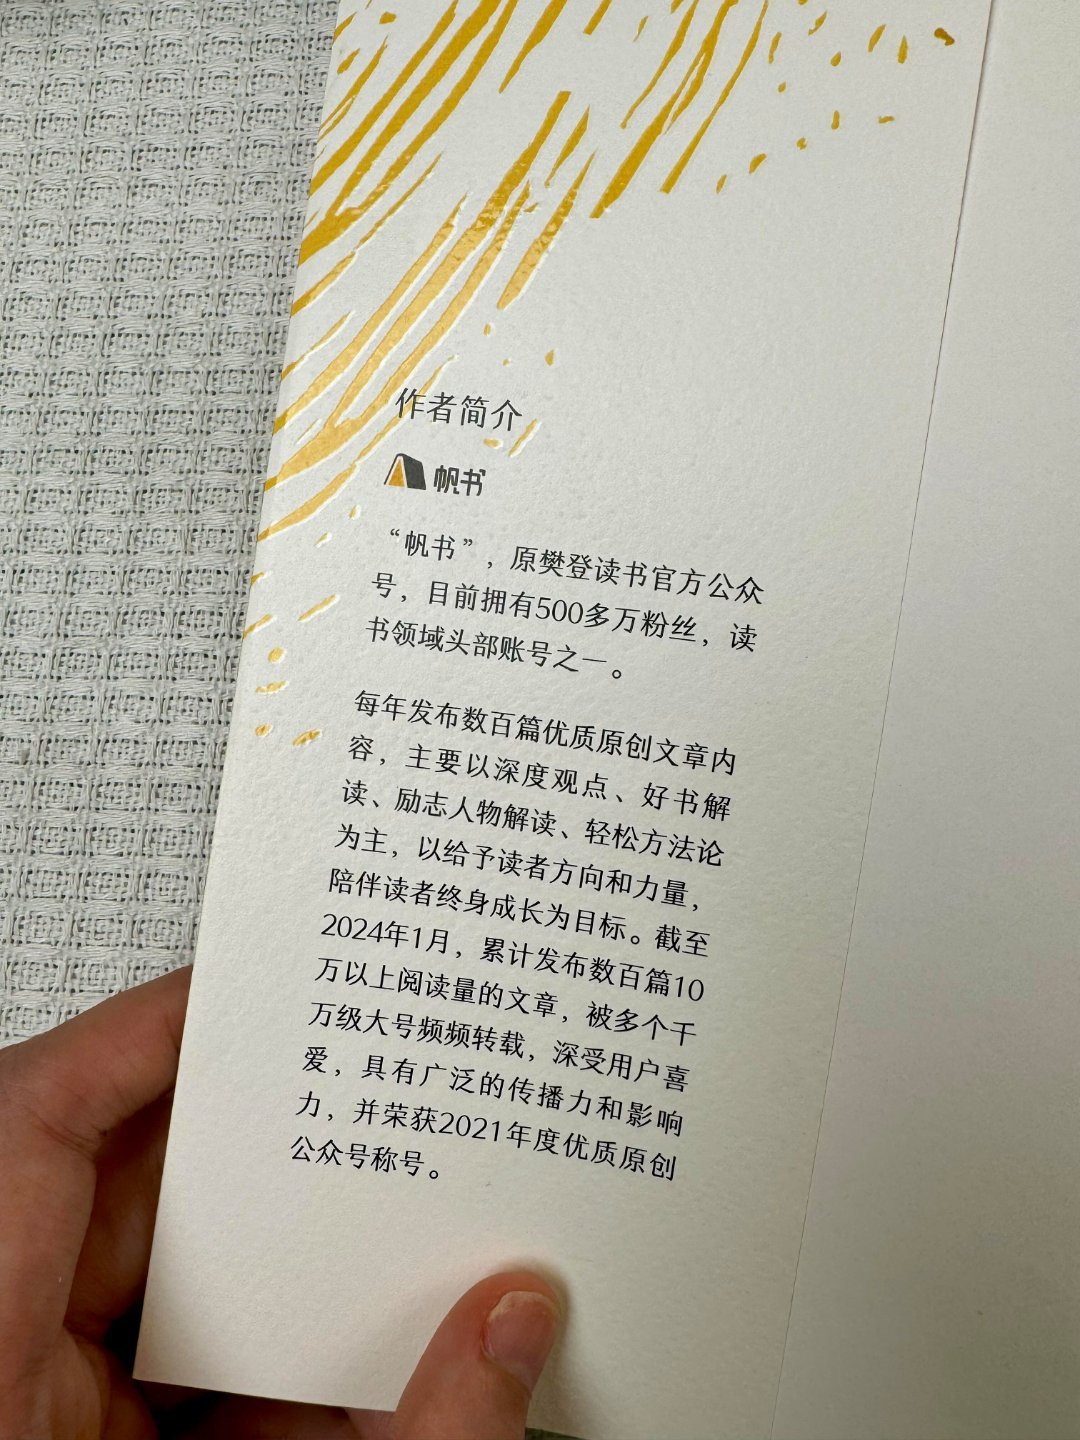 作者简介
帆书
“帆书”，原樊登读书官方公众
号，目前拥有500多万粉丝，读
书领域头部账号之一。
每年发布数百篇优质原创文章内
容，主要以深度观点、好书解
读、励志人物解读、轻松方法论
为主，以给予读者方向和力量，
陪伴读者终身成长为目标。截至
2024年1月，累计发布数百篇10
万以上阅读量的文章，被多个千
万级大号频频转载，深受用户喜
爱，具有广泛的传播力和影响
力，并荣获2021年度优质原创
公众号称号。